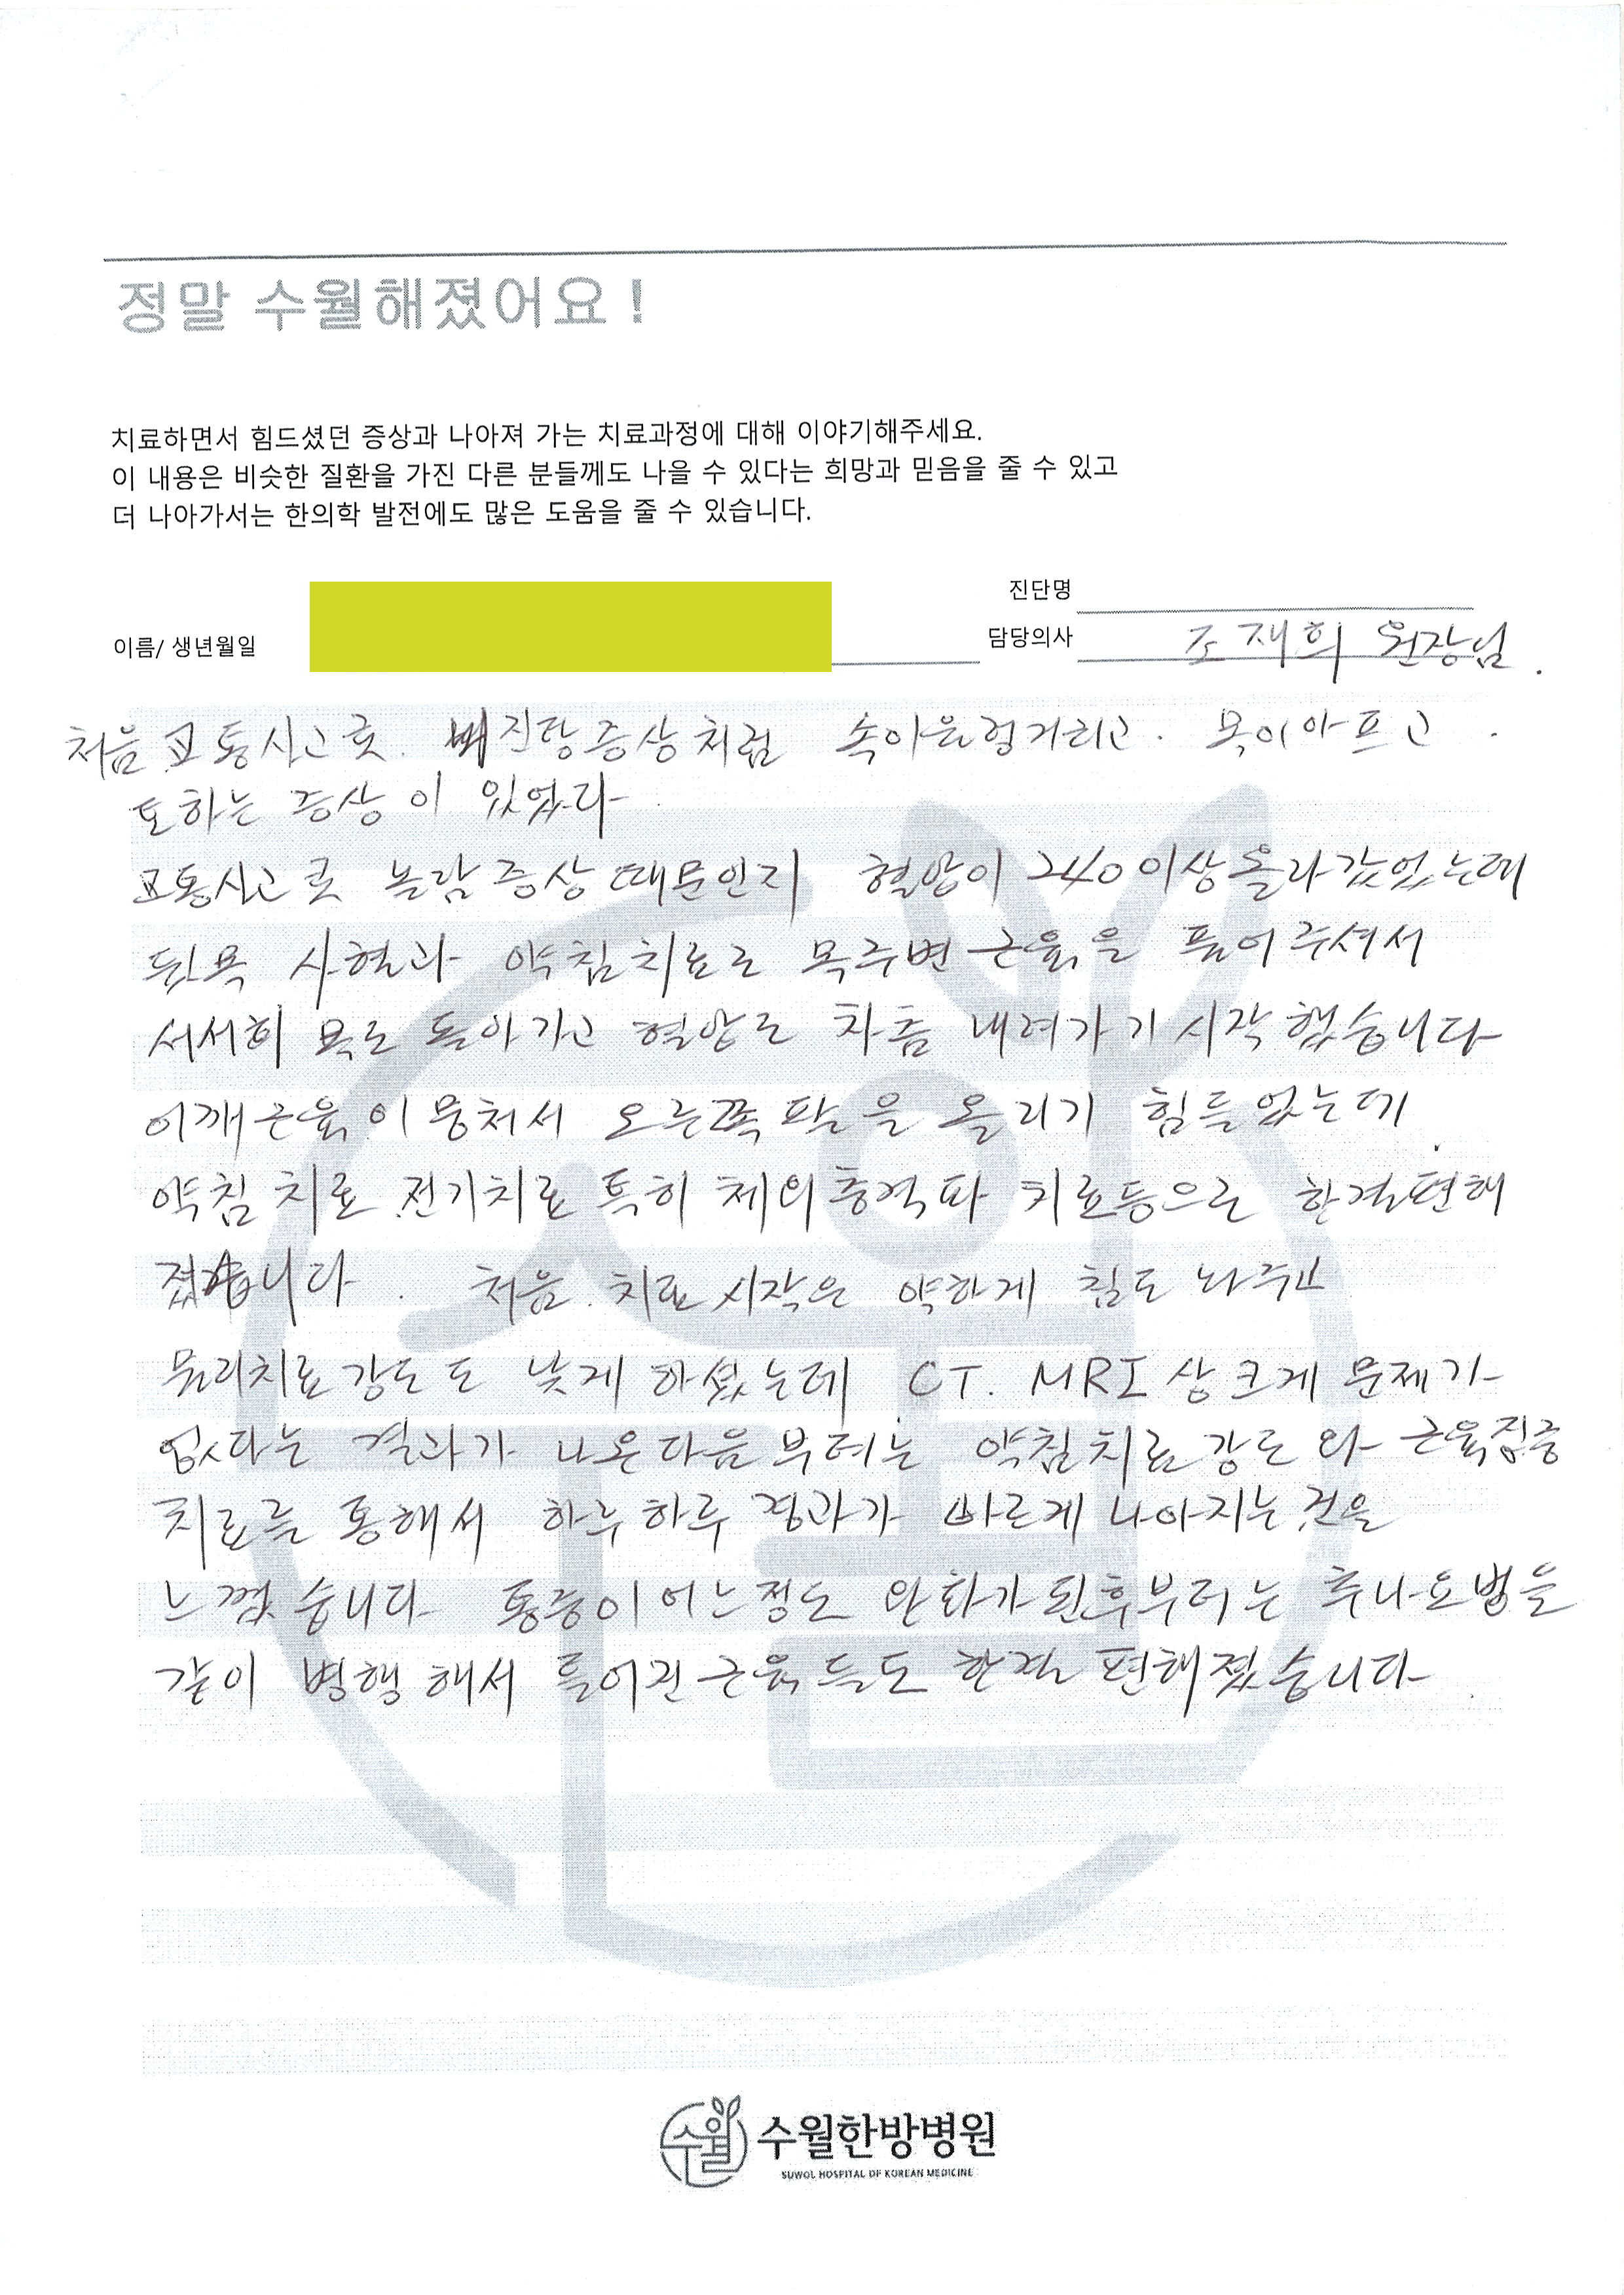 정말 수월해졌어요 !
치료하면서 힘드셨던 증상과 나아져 가는 치료과정에 대해 이야기해주세요.
이 내용은 비슷한 질환을 가진 다른 분들께도 나을 수 있다는 희망과 믿음을 줄 수 있고
더 나아가서는 한의학 발전에도 많은 도움을 줄 수 있습니다.
진단명
이름/ 생년월일 담당의사 조재희 원장님.
처음 교통사고후. 증상처럼 속이울렁거리고. 목이아프고.
토하는 증상이 있었다
교통사고후 놀람증상때문인지 혈압이 240이상올라갔었는데
뒷목 사혈과 약침치료로 목주변근육을 풀어주셔서
서서히 목도 돌아가고 혈압도 차츰 내려가기 시작했습니다
어깨근육이뭉쳐서 오른쪽팔을 올리기 힘들었는데
약침치료 전기치료 특히 체외충격파 치료등으로 한결편해
졌습니다. 처음 치료시작은 약하게 침도 놔주고
물리치료강도도 낮게 하셨는데 CT. MRI상크게 문제가
없다는 결과가 나온다음부터는 약침치료강도와 근육집중
치료를 통해서 하루하루 경과가 빠르게 나아지는것을
느꼈습니다 통증이어느정도 완화가된후부터는 추나요법을
같이 병행해서 틀어진근육들도 한결 편해졌습니다.
수월
수월한방병원
SUWOL HOSPITAL OF KOREAN MEDICINE